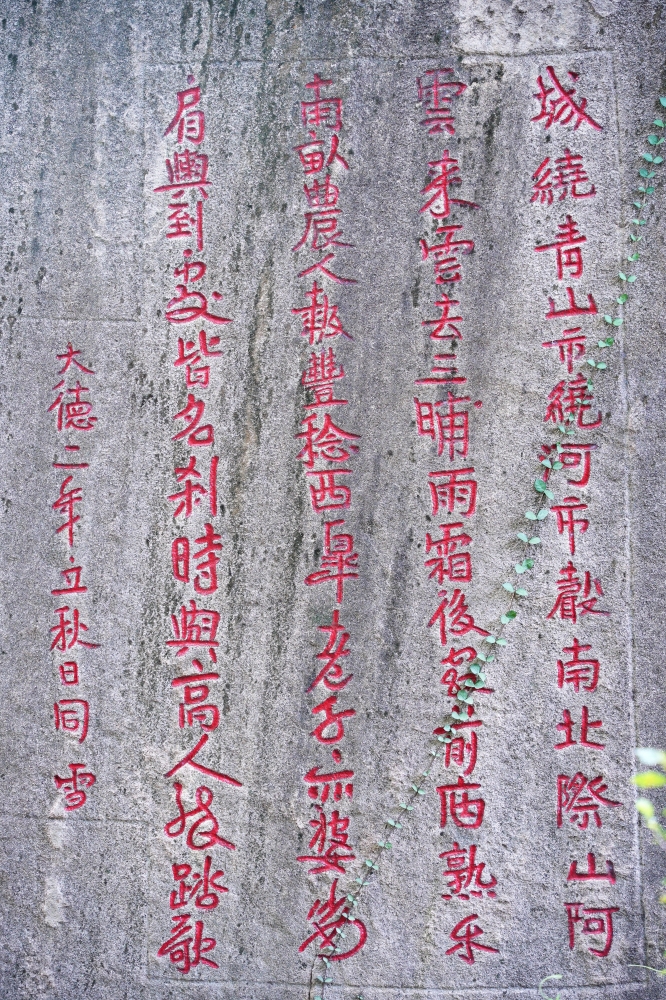 城繞青山市繞河市聲南北際山阿
雲來雲去三晡雨霜後霜前熟禾
南畝農人報豐稔西皋老子亦婆娑
肩輿到處皆名刹時與高人踏歌
大德二年立秋日同雪